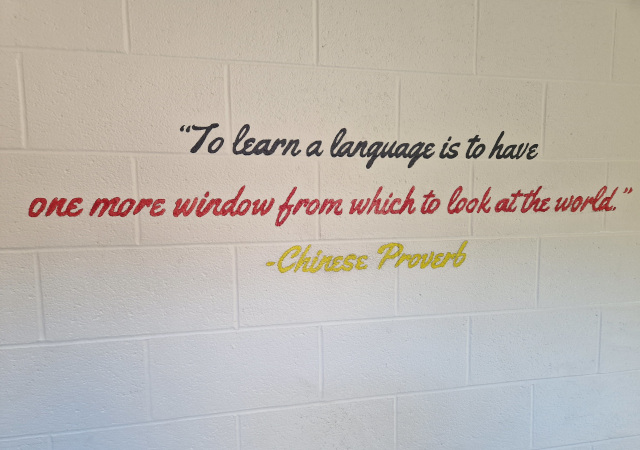 “To learn a language is to have
one more window from which to look at the world.”
-Chinese Proverb